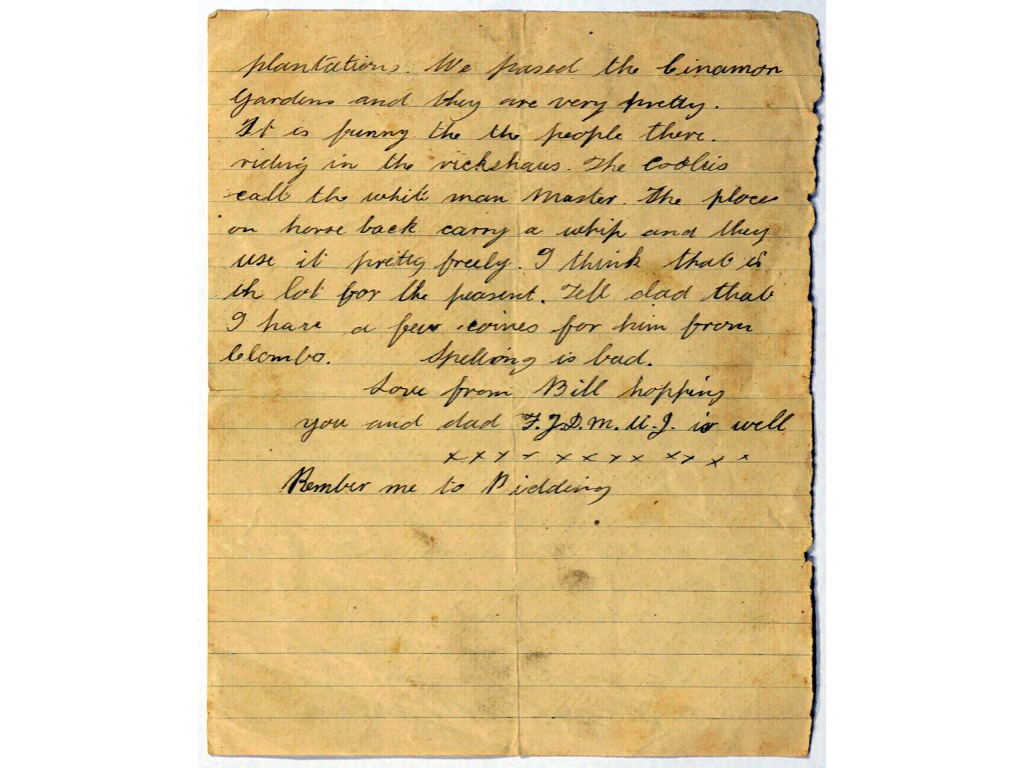 plantations. We pased the Cinamon
Gardens and they are very pretty.
It is funny the the people there.
riding in the rickshaus. The coolies
call the white man Master. The places
on horse back carry a whip and they
use it pretty freely. I think that is
th lot for the peasent. Tell dad that
I have a few coines for him from
Clombo. Spelling is bad.
Love from Bill hopping
you and dad F.J.D.M.U.J. is well
x x x x x x x x x x x x
Rember me to Bidding